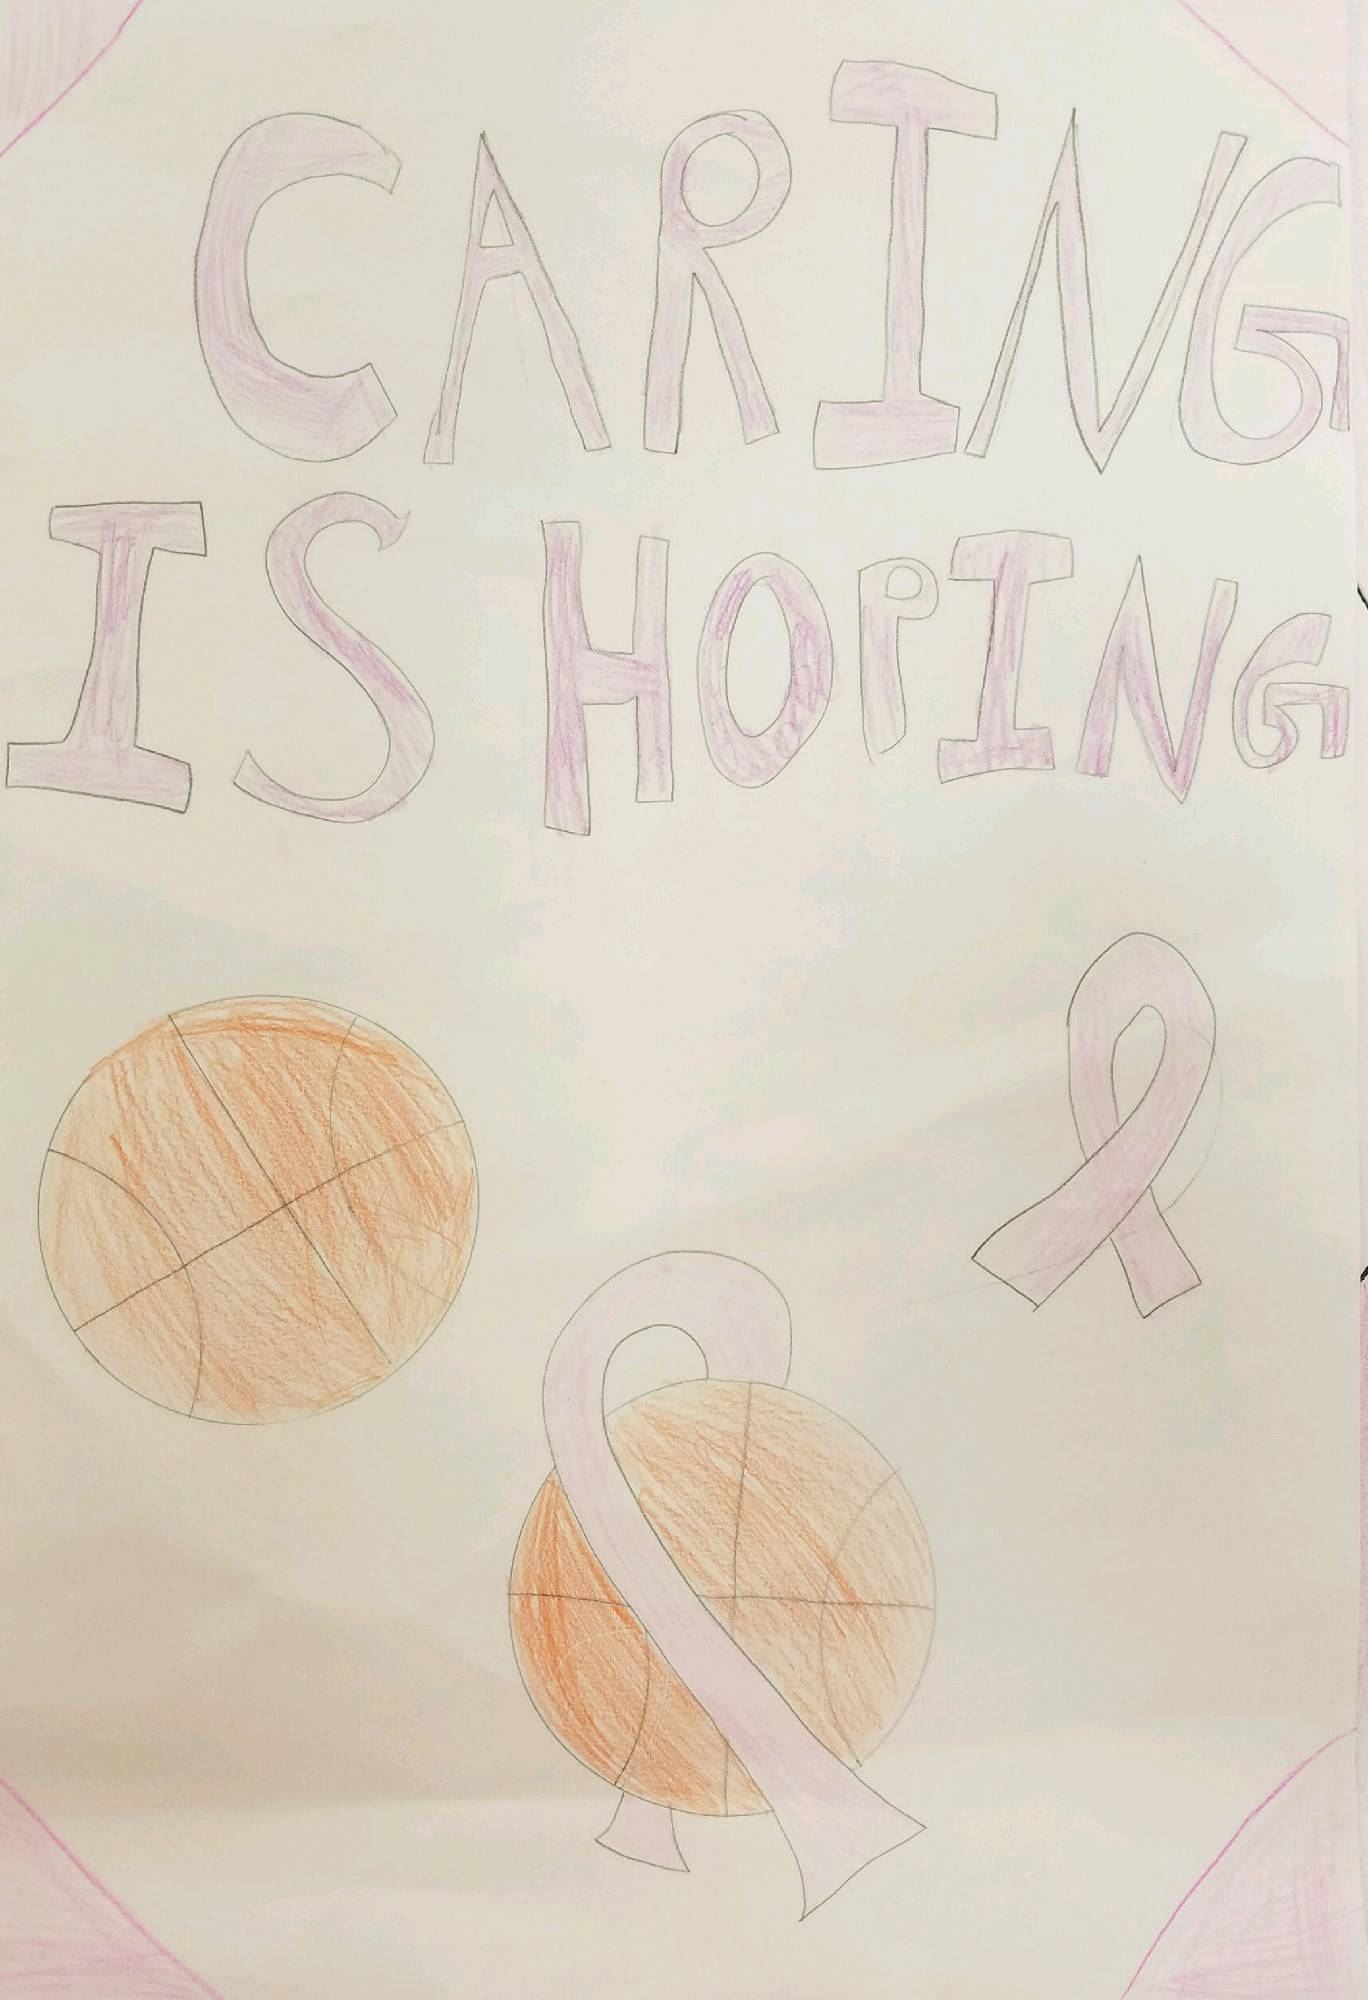 CARING
IS HOPING